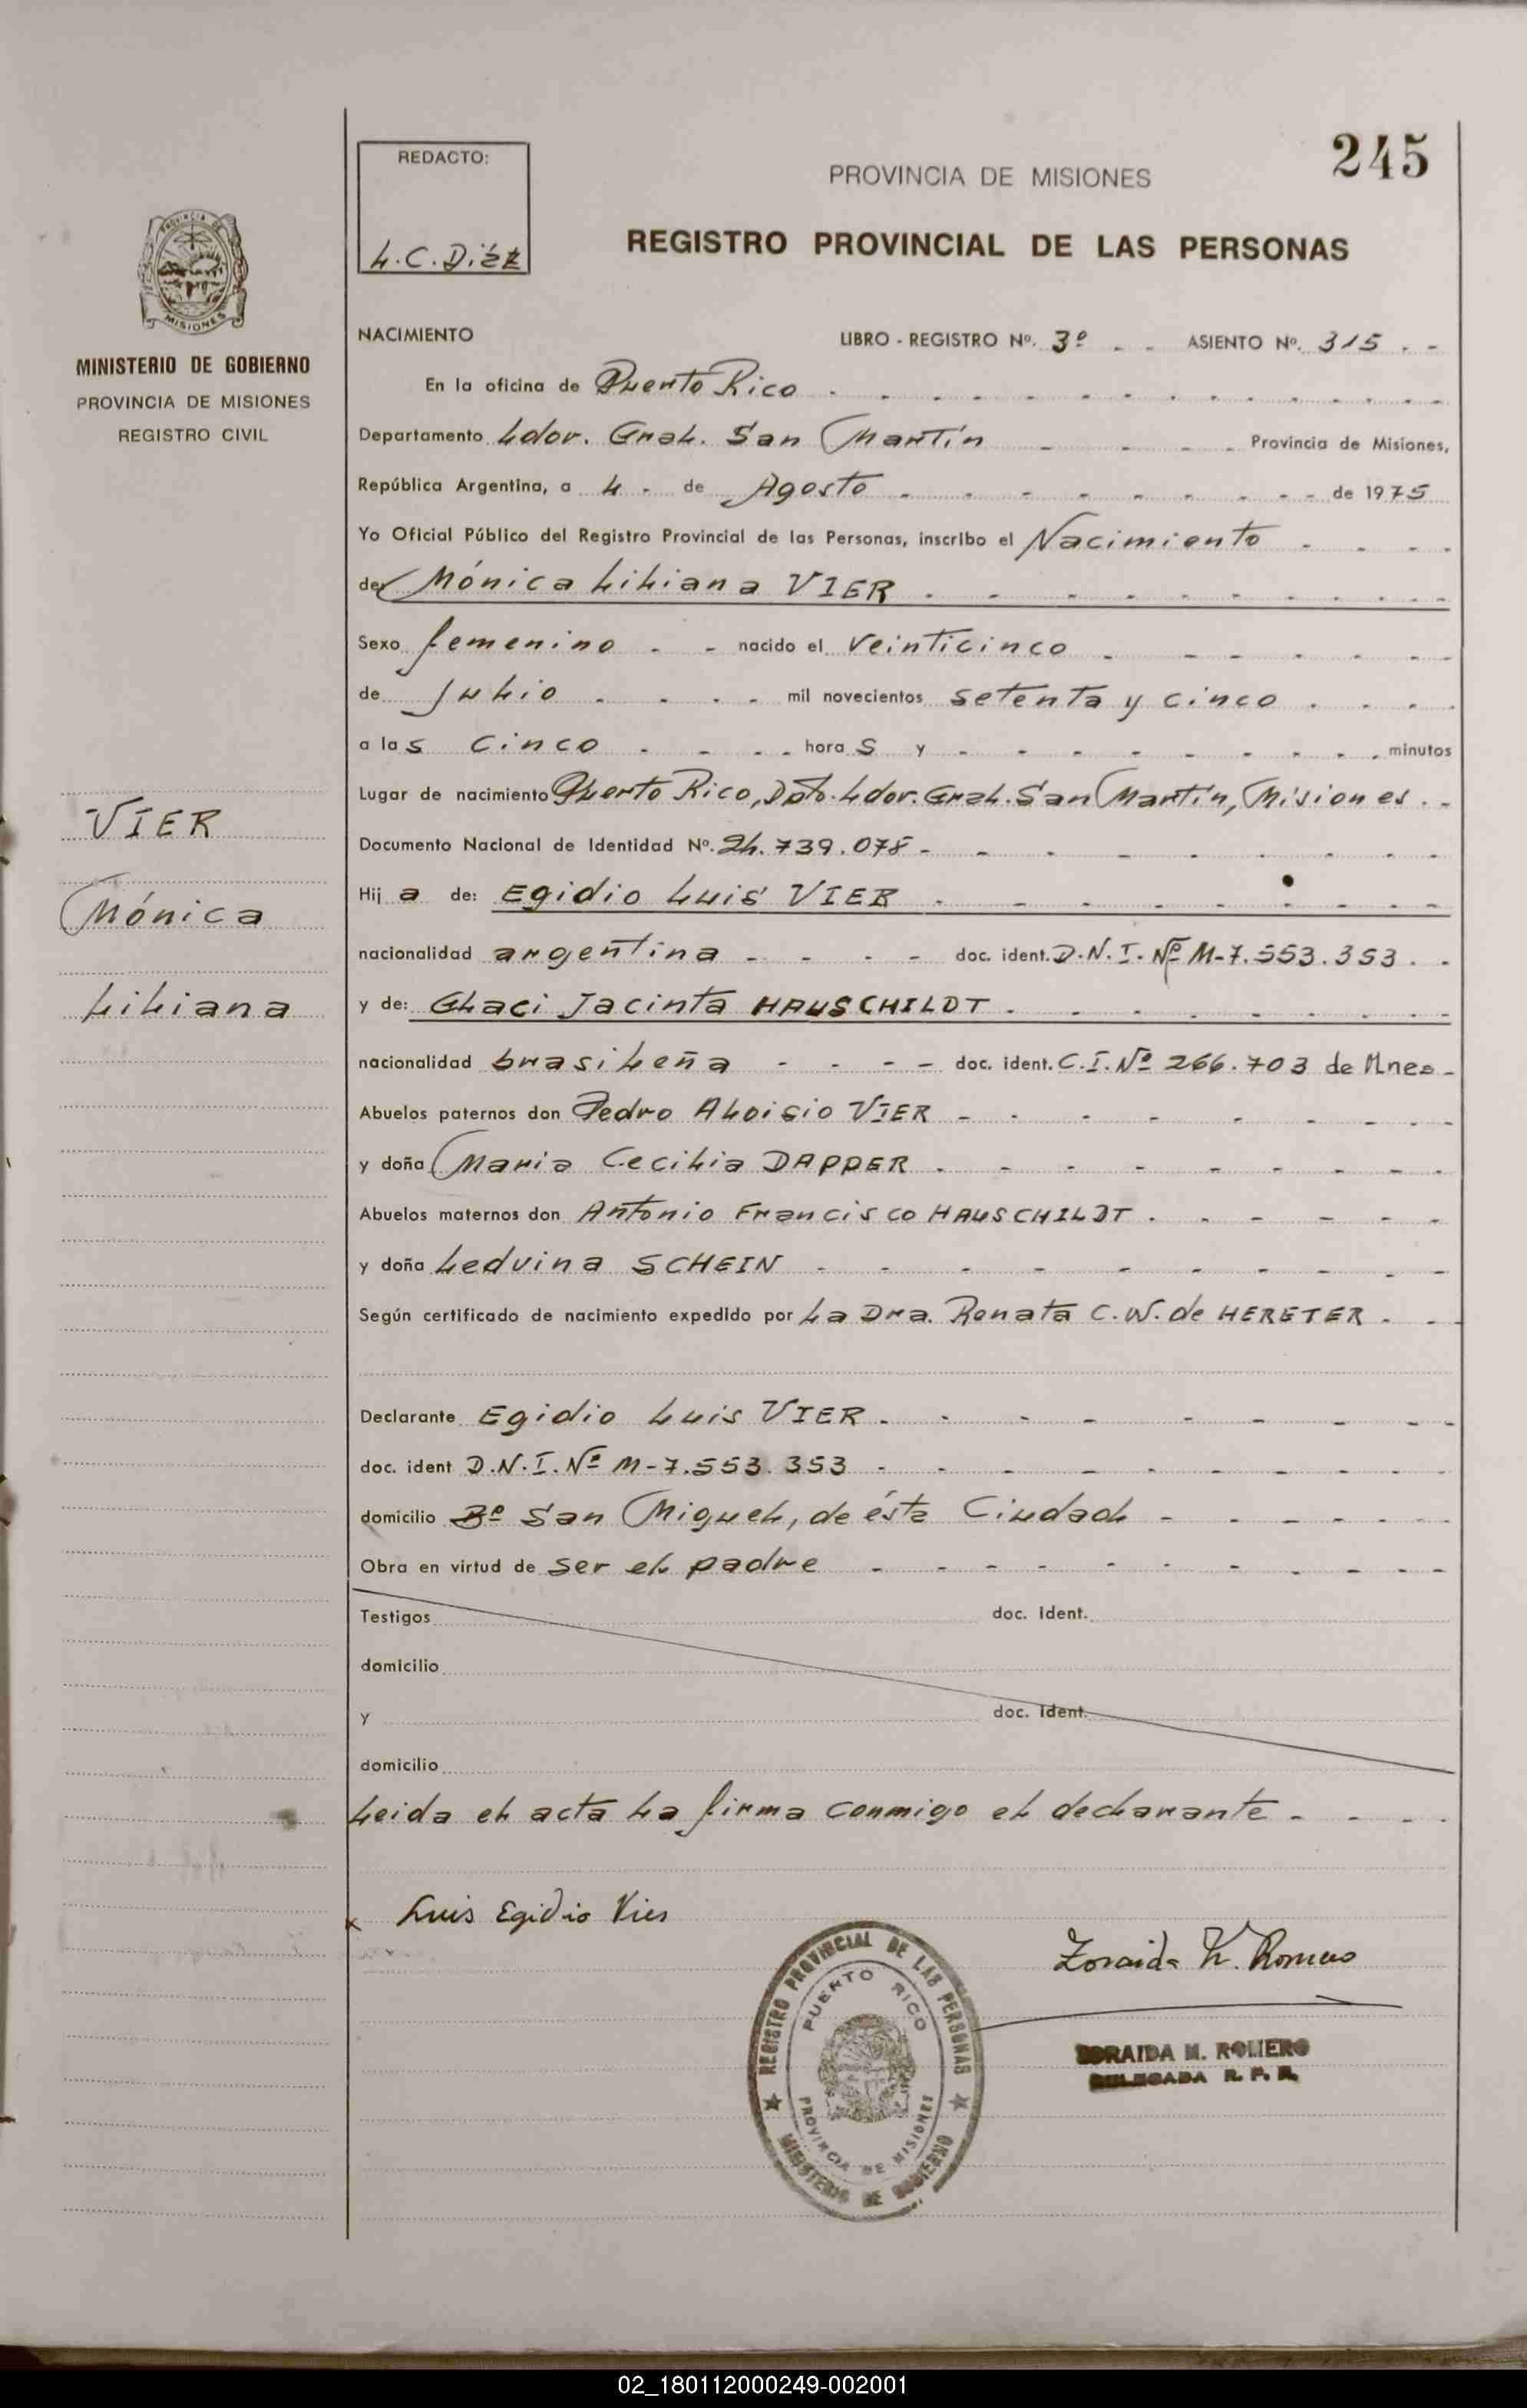 245
REDACTO:
L.C.Diéz
PROVINCIA DE MISIONES
REGISTRO PROVINCIAL DE LAS PERSONAS
PROVINCIA DE
MISIONES
MINISTERIO DE GOBIERNO
PROVINCIA DE MISIONES
REGISTRO CIVIL
NACIMIENTO LIBRO - REGISTRO Nº. 3º . - ASIENTO Nº. 315 . -
En la oficina de Puerto Rico
Departamento Ldor. Gral. San Martín Provincia de Misiones,
República Argentina, a 4 - de Agosto de 1975
Yo Oficial Público del Registro Provincial de las Personas, inscribo el Nacimiento
de Mónica Liliana VIER
Sexo femenino nacido el veinticinco
de Julio mil novecientos setenta y cinco
a las cinco horas y minutos
Lugar de nacimiento Puerto Rico, Dpto. Ldor. Gral. San Martín, Misiones . -
Documento Nacional de Identidad Nº. 24.739.078 -
Hija de: Egidio Luis VIER
nacionalidad argentina doc. ident. D.N.I. Nº M-7.553.353 . -
y de: Glaci Jacinta HAUSCHILDT
nacionalidad brasileña doc. ident. C.I. Nº 266.703 de Mnes -
Abuelos paternos don Pedro Aloisio VIER
y doña Maria Cecilia DAPPER
Abuelos maternos don Antonio Francisco HAUSCHILDT
y doña Ledvina SCHEIN
Según certificado de nacimiento expedido por La Dra. Renata C.W. de HERETER . -
Declarante Egidio Luis VIER
doc. ident D.N.I. Nº M-7.553.353
domicilio Bº San Miguel, de ésta Ciudad
Obra en virtud de ser el padre
Testigos doc. Ident.
domicilio
y doc. Ident.
domicilio
Leida el acta la firma conmigo el declarante
VIER
Mónica
Liliana
x Luis Egidio Vier
Zoraida M. Romero
REGISTRO PROVINCIAL DE LAS PERSONAS
PUERTO RICO
PROVINCIA DE MISIONES
MINISTERIO DE GOBIERNO
ZORAIDA M. ROMERO
DELEGADA R. P. P.
02_180112000249-002001